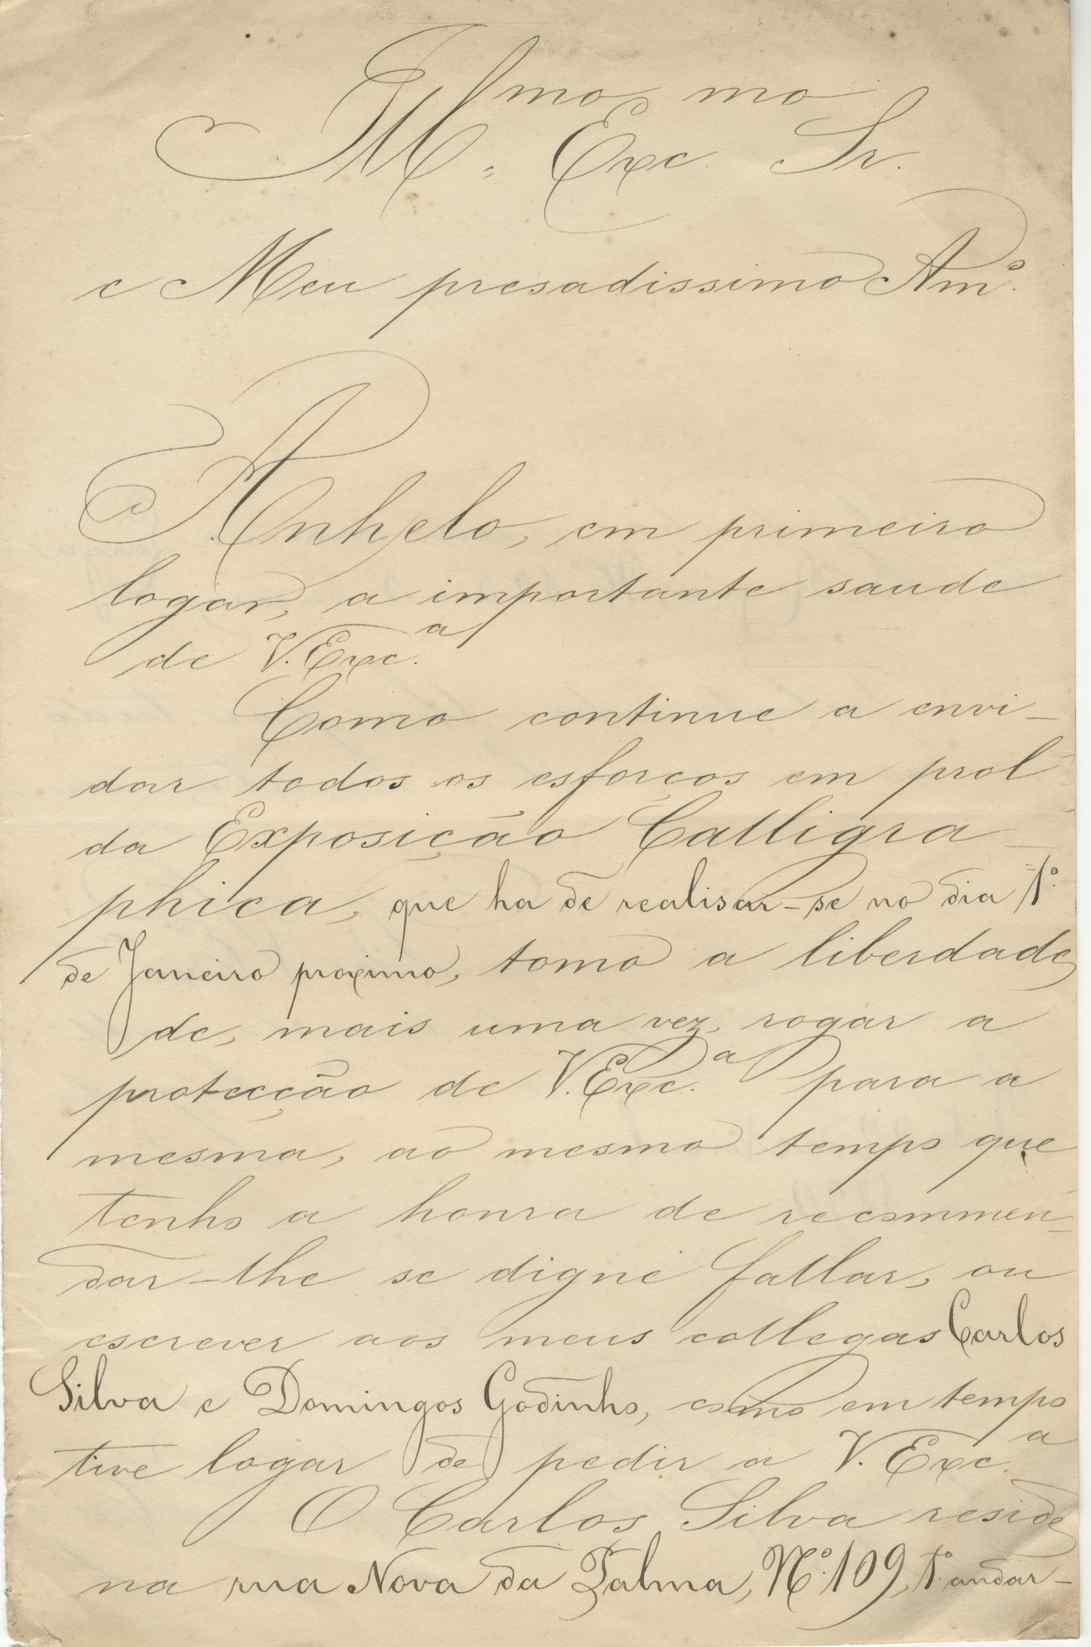 Illmo. Excmo. Sr.
e Meu presadissimo Amº.
Anhelo, em primeiro
logar, a importante saude
de V. Exc.ª
Como continue a envi-
dar todos os esforços em prol
da Exposição Calligra-
phica, que ha de realisar-se no dia 1º.
de Janeiro proximo, tomo a liberdade
de, mais uma vez, rogar a
protecção de V. Exc.ª para a
mesma, ao mesmo tempo que
tenho a honra de recommen-
dar-lhe se digne fallar, ou
escrever aos meus collegas Carlos
Silva e Domingos Godinho, como em tempo
tive logar de pedir a V. Exc.ª
O Carlos Silva reside
na rua Nova da Palma, Nº. 109, 1º. andar-